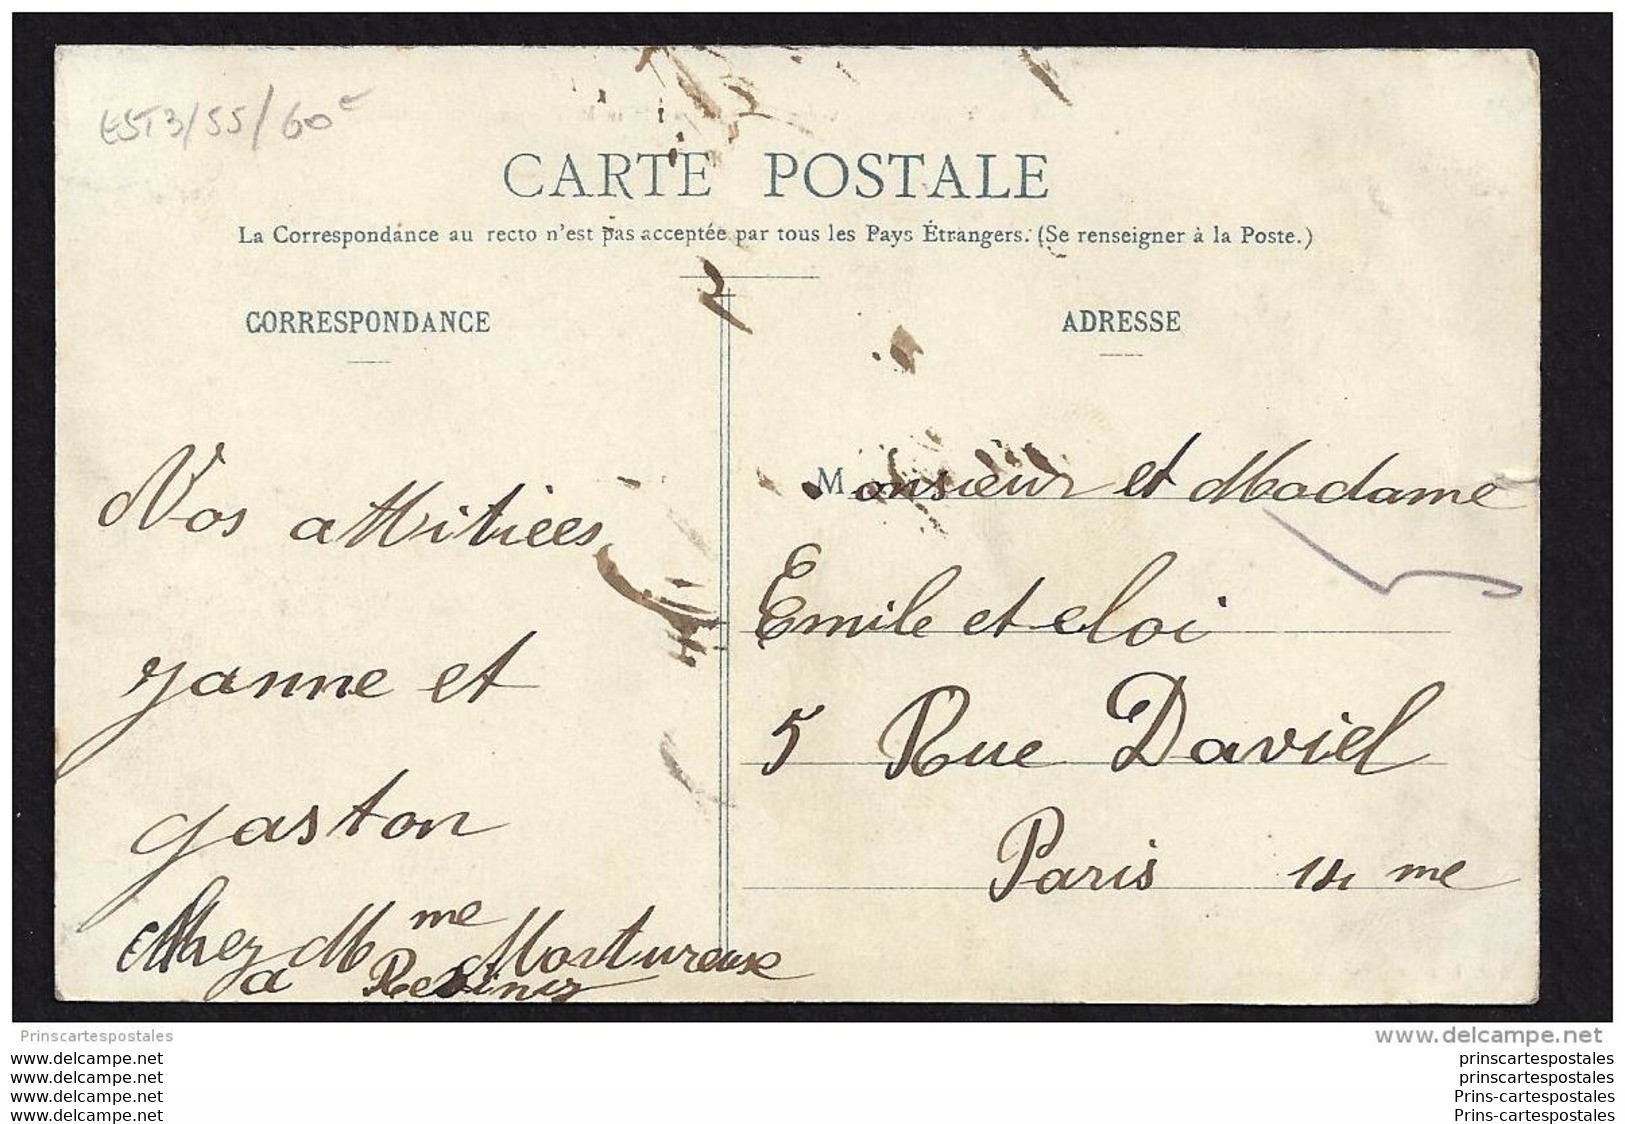 EST3/55/60€
CARTE POSTALE
La Correspondance au recto n'est pas acceptée par tous les Pays Étrangers. (Se renseigner à la Poste.)
CORRESPONDANCE
Nos attitiees
yanne et
gaston
chez Mme Mortureuse
a
ADRESSE
Monsieur et Madame
Emile et eloi
5 Rue Daviel
Paris 14 me
Prinscartespostales
www.delcampe.net
www.delcampe.net
www.delcampe.net
www.delcampe.net
www.delcampe.net
prinscartespostales
prinscartespostales
Prins-cartespostales
Prins-cartespostales